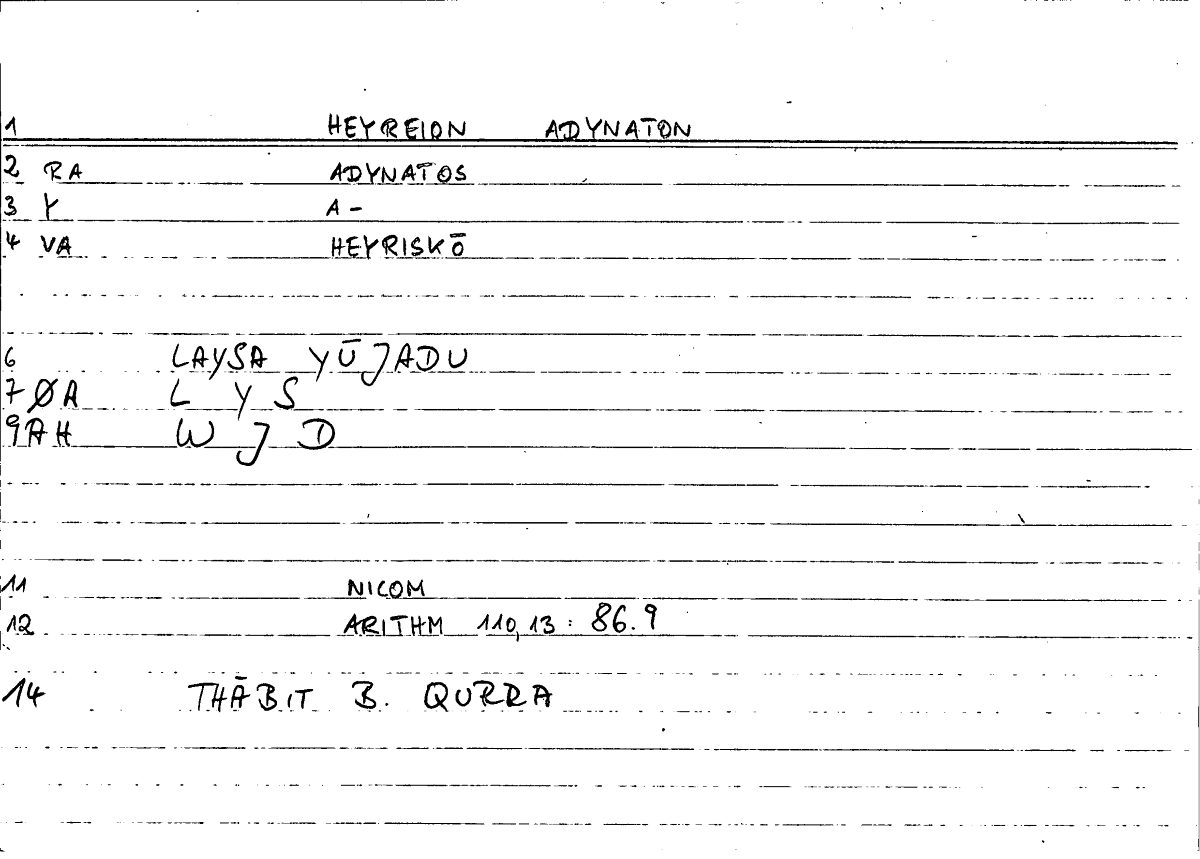 1 HEYREION ADYNATON
2 RA ADYNATOS
3 Y A-
4 VA HEYRISKŌ
6 LAYSA YŪJADU
7 ØA L Y S
9 AH W J D
11 NICOM
12 ARITHM 110,13: 86.9
14 THĀBIT B. QURRA